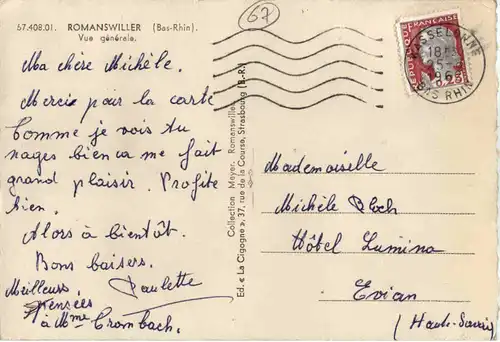 67.408.01. ROMANSWILLER (Bas-Rhin).
Vue générale.
67
REPUBLIQUE FRANÇAISE
WASSELONNE
BAS RHIN
Ma chère Michèle.
Mercie pour la carte
Comme je vois tu
nages bien ca me fait
grand plaisir. Profite
bien.
Alors à bientôt.
Bons baisers.
Paulette
Meilleurs
Pensées
à Mme Crombach.
Collection Mayer, Romanswiller
Ed. « La Cigogne », 37, rue de la Course, Strasbourg (B.-R.)
Mademoiselle
Michèle Bloch
Hôtel Lumina
Evian
(Haute-Savoie)